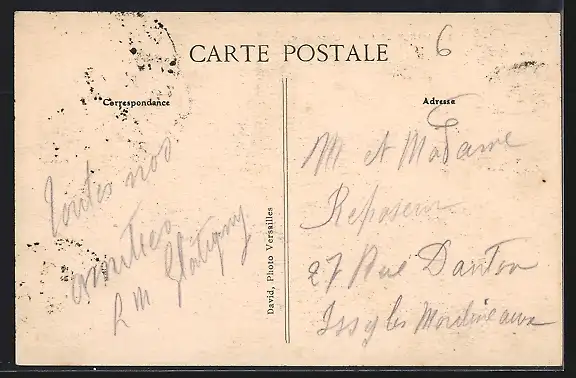 6
CARTE POSTALE
Correspondance
Adresse
toutes nos
amities
David, Photo Versailles
Mr et Madame
27 Rue Danton
Issy les Moulineaux